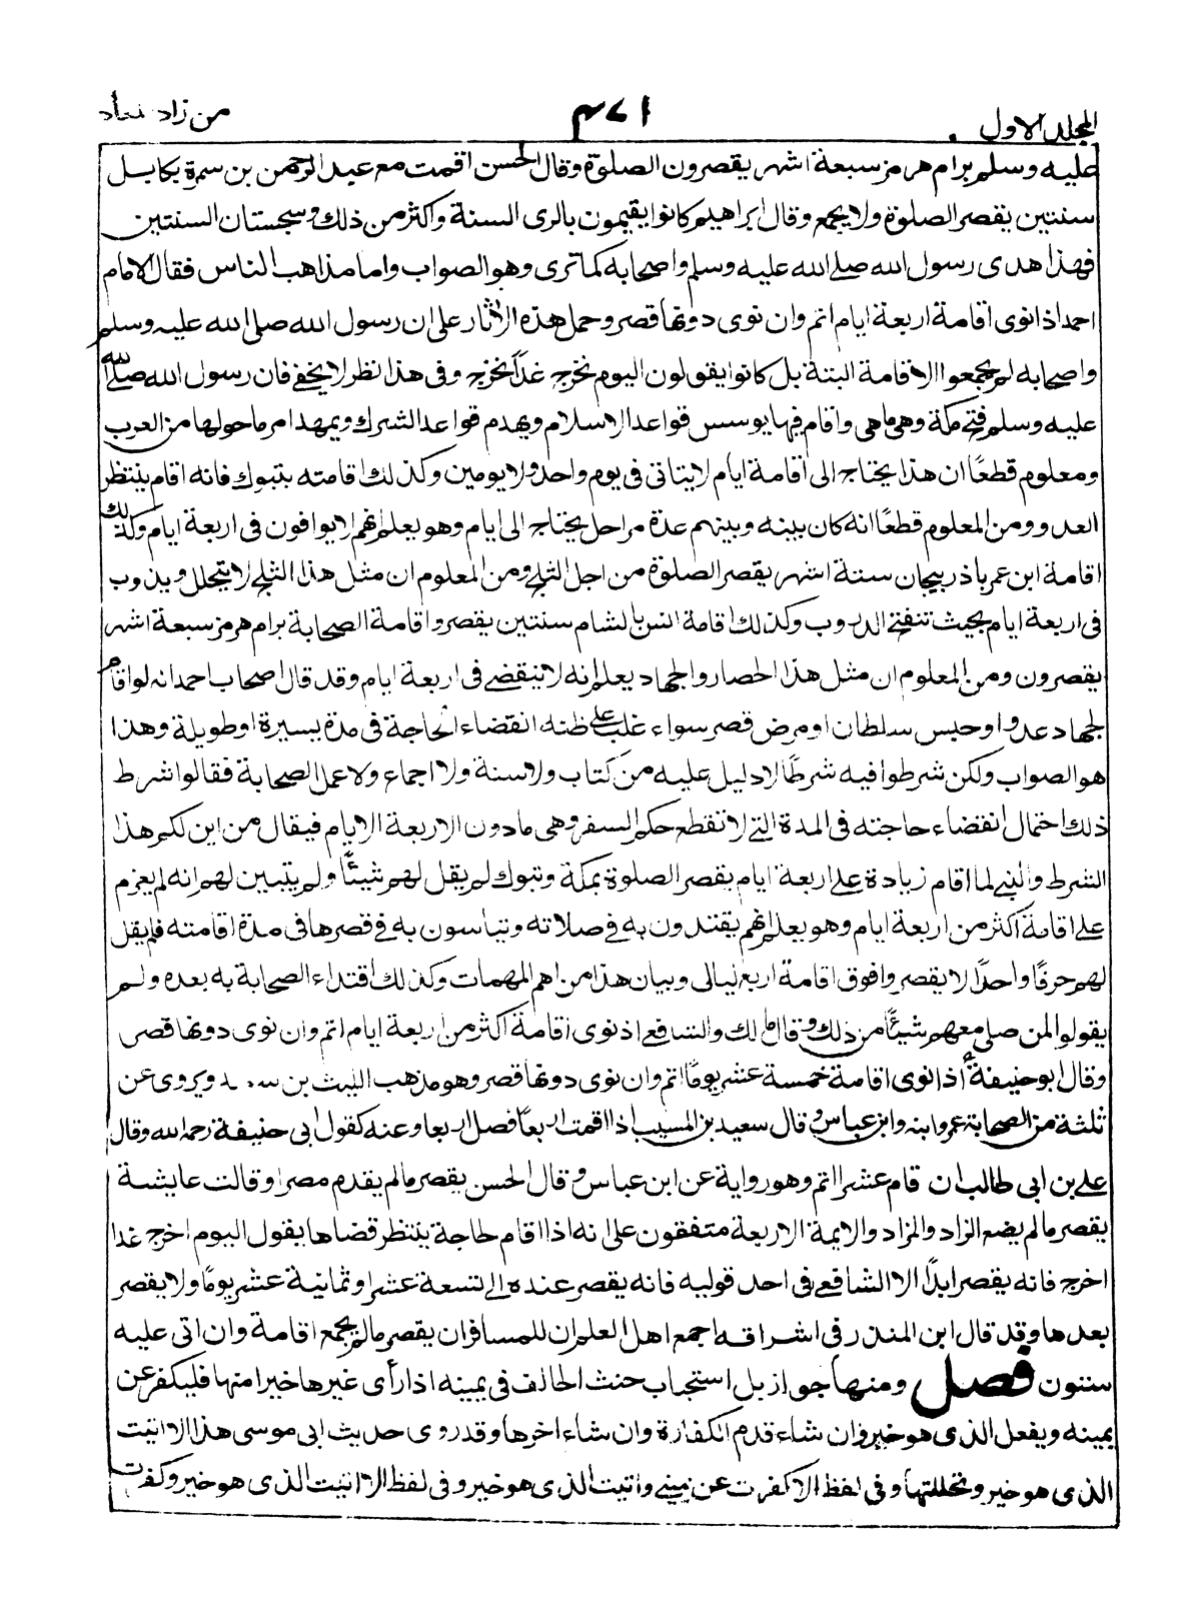 المجلد الاول
٤٧١
من زاد معاد
عليه وسلم برام هرمز سبعة اشهر يقصرون الصلوة وقال الحسن اقمت مع عبد الرحمن بن سمرة بكابل
سنتين يقصر الصلوة ولا يجمع وقال ابراهيم كانوا يقيمون بالرى السنة واكثر من ذلك وسجستان السنتين
فهذا هدى رسول الله صلى الله عليه وسلم واصحابه كما ترى وهو الصواب واما مذاهب الناس فقال الامام
احمد اذا نوى اقامة اربعة ايام اتم وان نوى دونها قصر وحمل هذه الأثار على ان رسول الله صلى الله عليه وسلم
واصحابه لم يجمعوا الاقامة البتة بل كانوا يقولون اليوم نخرج غداً نخرج وفى هذا نظر لا يخفى فان رسول الله صلى الله
عليه وسلم فتح مكة وهى ما هى واقام فيها يوسس قواعد الاسلام ويهدم قواعد الشرك ويمهد امر ما حولها من العرب
ومعلوم قطعًا ان هذا يحتاج الى اقامة ايام لا يتاتى فى يوم واحد ولا يومين وكذلك اقامته بتبوك فانه اقام ينتظر
العدو ومن المعلوم قطعًا انه كان بينه وبينهم عدة مراحل يحتاج الى ايام وهو يعلم انهم لا يوافون فى اربعة ايام وكذلك
اقامة ابن عمر باذربيجان ستة اشهر يقصر الصلوة من اجل الثلج ومن المعلوم ان مثل هذا الثلج لا يتحلل ويذوب
فى اربعة ايام بحيث تنفتح الدروب وكذلك اقامة انس بالشام سنتين يقصر واقامة الصحابة برام هرمز سبعة اشهر
يقصرون ومن المعلوم ان مثل هذا الحصار والجهاد يعلم انه لا ينقضى فى اربعة ايام وقد قال اصحاب احمد انه لو اقام
لجهاد عدو او حبس سلطان او مرض قصر سواء غلب على ظنه انقضاء الحاجة فى مدة يسيرة او طويلة وهذا
هو الصواب ولكن شرطوا فيه شرطًا لا دليل عليه من كتاب ولا سنة ولا اجماع ولا عمل الصحابة فقالوا شرط
ذلك احتمال انقضاء حاجته فى المدة التى لا تقطع حكم السفر وهى ما دون الاربعة الايام فيقال من اين لكم هذا
الشرط والنبى لما اقام زيادة على اربعة ايام يقصر الصلوة بمكة وتبوك لم يقل لهم شيئًا ولم يتبين لهم انه لم يعزم
على اقامة اكثر من اربعة ايام وهو يعلم انهم يقتدون به فى صلاته ويتاسون به فى قصرها فى مدة اقامته فلم يقل
لهم حرفًا واحدًا لا يقصر وافوق اقامة اربع ليالى وبيان هذا من اهم المهمات وكذلك اقتداء الصحابة به بعده ولم
يقولوا لمن صلى معهم شيئًا من ذلك وقال مالك والشافعى اذ نوى اقامة اكثر من اربعة ايام اتم وان نوى دونها قصر
وقال ابو حنيفة اذا نوى اقامة خمسة عشر يومًا اتم وان نوى دونها قصر وهو مذهب الليث بن سعد ويروى عن
ثلثة من الصحابة عمر وابنه وابن عباس وقال سعيد بن المسيب اذا اقمت اربعًا فصل اربعا وعنه كقول ابى حنيفة رحمه الله وقال
على بن ابى طالب ان قام عشرا اتم وهو رواية عن ابن عباس وقال الحسن يقصر ما لم يقدم مصرا وقالت عايشة
يقصر ما لم يضع الزاد والمزاد والايمة الاربعة متفقون على انه اذا اقام حاجة ينتظر قضاها يقول اليوم اخرج غدا
اخرج فانه يقصر ابدًا الا الشافعى فى احد قوليه فانه يقصر عنده الى تسعة عشر او ثمانية عشر يومًا ولا يقصر
بعدها وقد قال ابن المنذر فى اشراقه اجمع اهل العلم ان للمسافر ان يقصر ما لم يجمع اقامة وان اتى عليه
سنون فصل ومنها جواز بل استحباب حنث الحالف فى يمينه اذا رأى غيرها خيرا منها فليكفر عن
يمينه ويفعل الذى هو خير وان شاء قدم الكفارة وان شاء اخرها وقد روى حديث ابى موسى هذا الا اتيت
الذى هو خير وتحللتها وفى لفظ الا كفرت عن يمينى واتيت الذى هو خير وفى لفظ الا اتيت الذى هو خير وكفرت